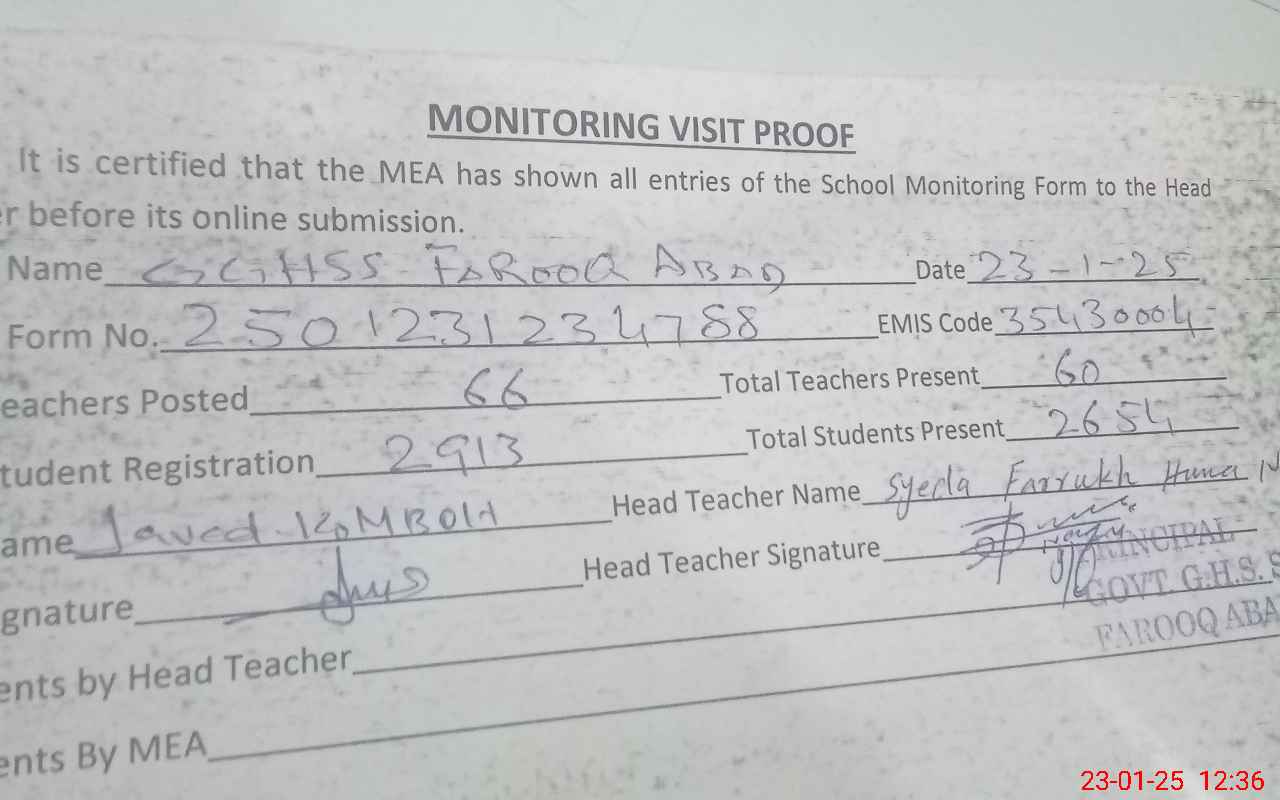 MONITORING VISIT PROOF
It is certified that the MEA has shown all entries of the School Monitoring Form to the Head
r before its online submission.
Name GGHSS FAROOQ ABAD Date 23-1-25
Form No. 2501231234788 EMIS Code 35430004
eachers Posted 66 Total Teachers Present 60
tudent Registration 2913 Total Students Present 2654
ame Javed KAMBOH Head Teacher Name Syeda Farrukh Huma N
gnature Head Teacher Signature
PRINCIPAL
GOVT. G.H.S. S
FAROOQ ABA
ents by Head Teacher
ents By MEA
23-01-25 12:36